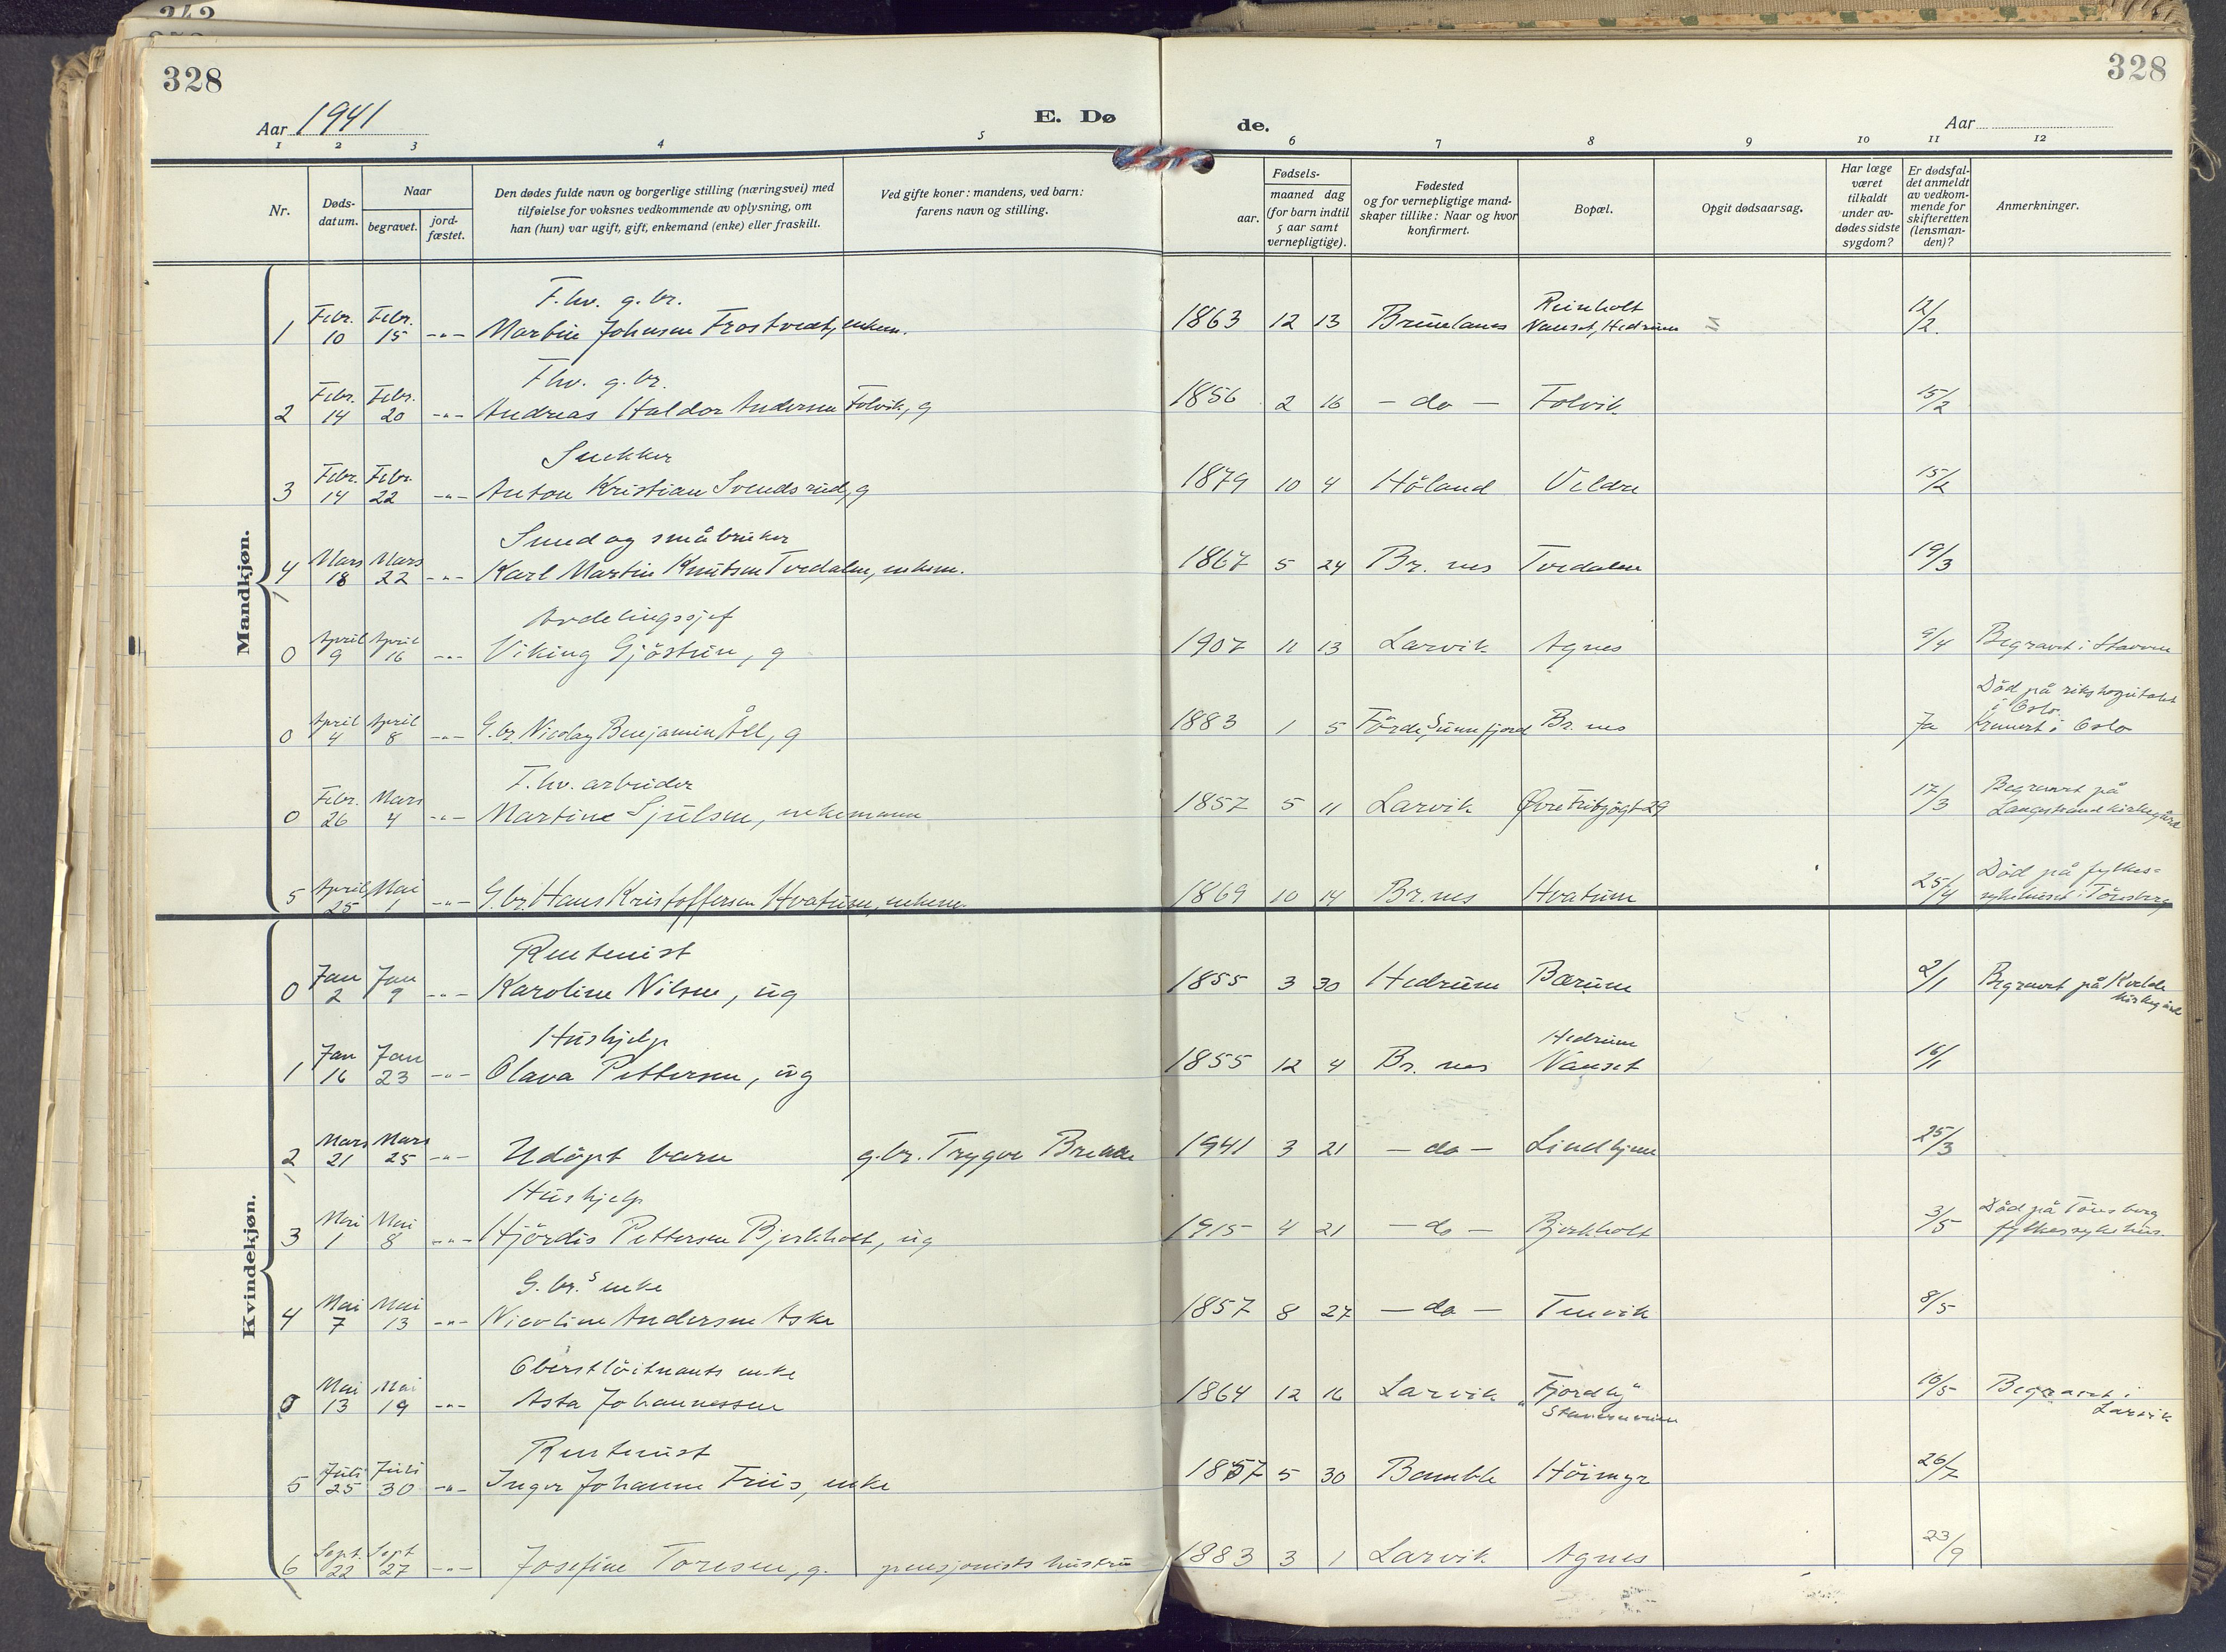 328
328
Aar 1941
E. Dø
de.
Aar
1 2 3 4 5 6 7 8 9 10 11 12
Nr.
Døds-
datum.
Naar
begravet.
jord-
fæstet.
Den dødes fulde navn og borgerlige stilling (næringsvei) med
tilføielse for voksnes vedkommende av oplysning, om
han (hun) var ugift, gift, enkemand (enke) eller fraskilt.
Ved gifte koner: mandens, ved barn:
farens navn og stilling.
Fødsels-
aar.
maaned dag
(for barn indtil
5 aar samt
vernepligtige).
Fødested
og for vernepligtige mand-
skaper tillike: Naar og hvor
konfirmert.
Bopæl.
Opgit dødsaarsag.
Har læge
været
tilkaldt
under av-
dødes sidste
sygdom?
Er dødsfal-
det anmeldt
av vedkom-
mende for
skifteretten
(lensman-
den)?
Anmerkninger.
Mandkjøn.
F.hv. g.br. Reinholt
1 Febr. 10 Febr. 15 -"- Martin Johnsen Frostvedt, enkem. 1863 12 13 Brunlanes Nanset, Hedrum 12/2.
F.hv. g.br.
2 Febr. 14 Febr. 20 -"- Andreas Haldor Andersen Folvik, g 1856 2 16 - do - Folvik 15/2
Snekker
3 Febr. 14 Febr. 22 -"- Anton Kristian Svendsrud, g 1879 10 4 Höland Vildre 15/2
Smed og småbruker
4 Mars 18 Mars 22 -"- Karl Martin Knutsen Tvedalen, enkem. 1867 5 24 Br. nes Tvedalen 19/3
Avdelingssjef
0 April 9 April 16 -"- Viking Gjöstein, g 1907 11 13 Larvik Agnes 9/4 Begravet i Stavern
Död på rikshospitalet
i Oslo.
0 April 4 April 8 -"- G.br. Nicolay Benjamin Åll, g 1883 1 5 Förde, Sunnfjord Br. nes Ja Kremert i Oslo
F.hv. arbeider Begravet på
0 Febr. 26 Mars 4 -"- Martine Sjulsen, enkemann 1857 5 11 Larvik Øvre Fritzøegt 29 17/3 Langestrand kirkegård
Död på fylkes=
5 April 25 Mai 1 -"- G.br. Hans Kristoffersen Hvatum, enkem. 1869 10 14 Br. nes Hvatum 25/4 sykehuset i Tönsberg
Kvindekjøn.
Rentenist
0 Jan 2 Jan 9 -"- Karoline Nilsen, ug 1855 3 30 Hedrum Bærum 2/1 Begravet på Kvelde
kirkegård
Hushjelp Hedrum
1 Jan 16 Jan 23 -"- Olava Pettersen, ug 1855 12 4 Br. nes Nanset 16/1
2 Mars 21 Mars 25 -"- Udöpt barn g.br. Trygve Brenne 1941 3 21 - do - Lindhjem 25/3
Hushjelp Död på Tönsberg
3 Mai 1 Mai 8 -"- Hjördis Pettersen Bjerkholt, ug 1915 4 21 - do - Bjerkholt 3/5 fylkessykehus.
G.br.s enke
4 Mai 7 Mai 13 -"- Nicoline Andersen Aske 1857 8 27 - do - Tenvik 8/5
Oberstlöitnants enke
0 Mai 13 Mai 19 -"- Asta Johannessen 1864 12 16 Larvik "Fjordly" 16/5 Begravet i
Larvik
Rentenist
5 Juli 25 Juli 30 -"- Inger Johanne Friis, enke 1857 5 30 Bamble Höimyr 26/7
6 Sept. 22 Sept 27 -"- Josefine Toresen, g. pensjonists hustru 1883 3 1 Larvik Agnes 23/9